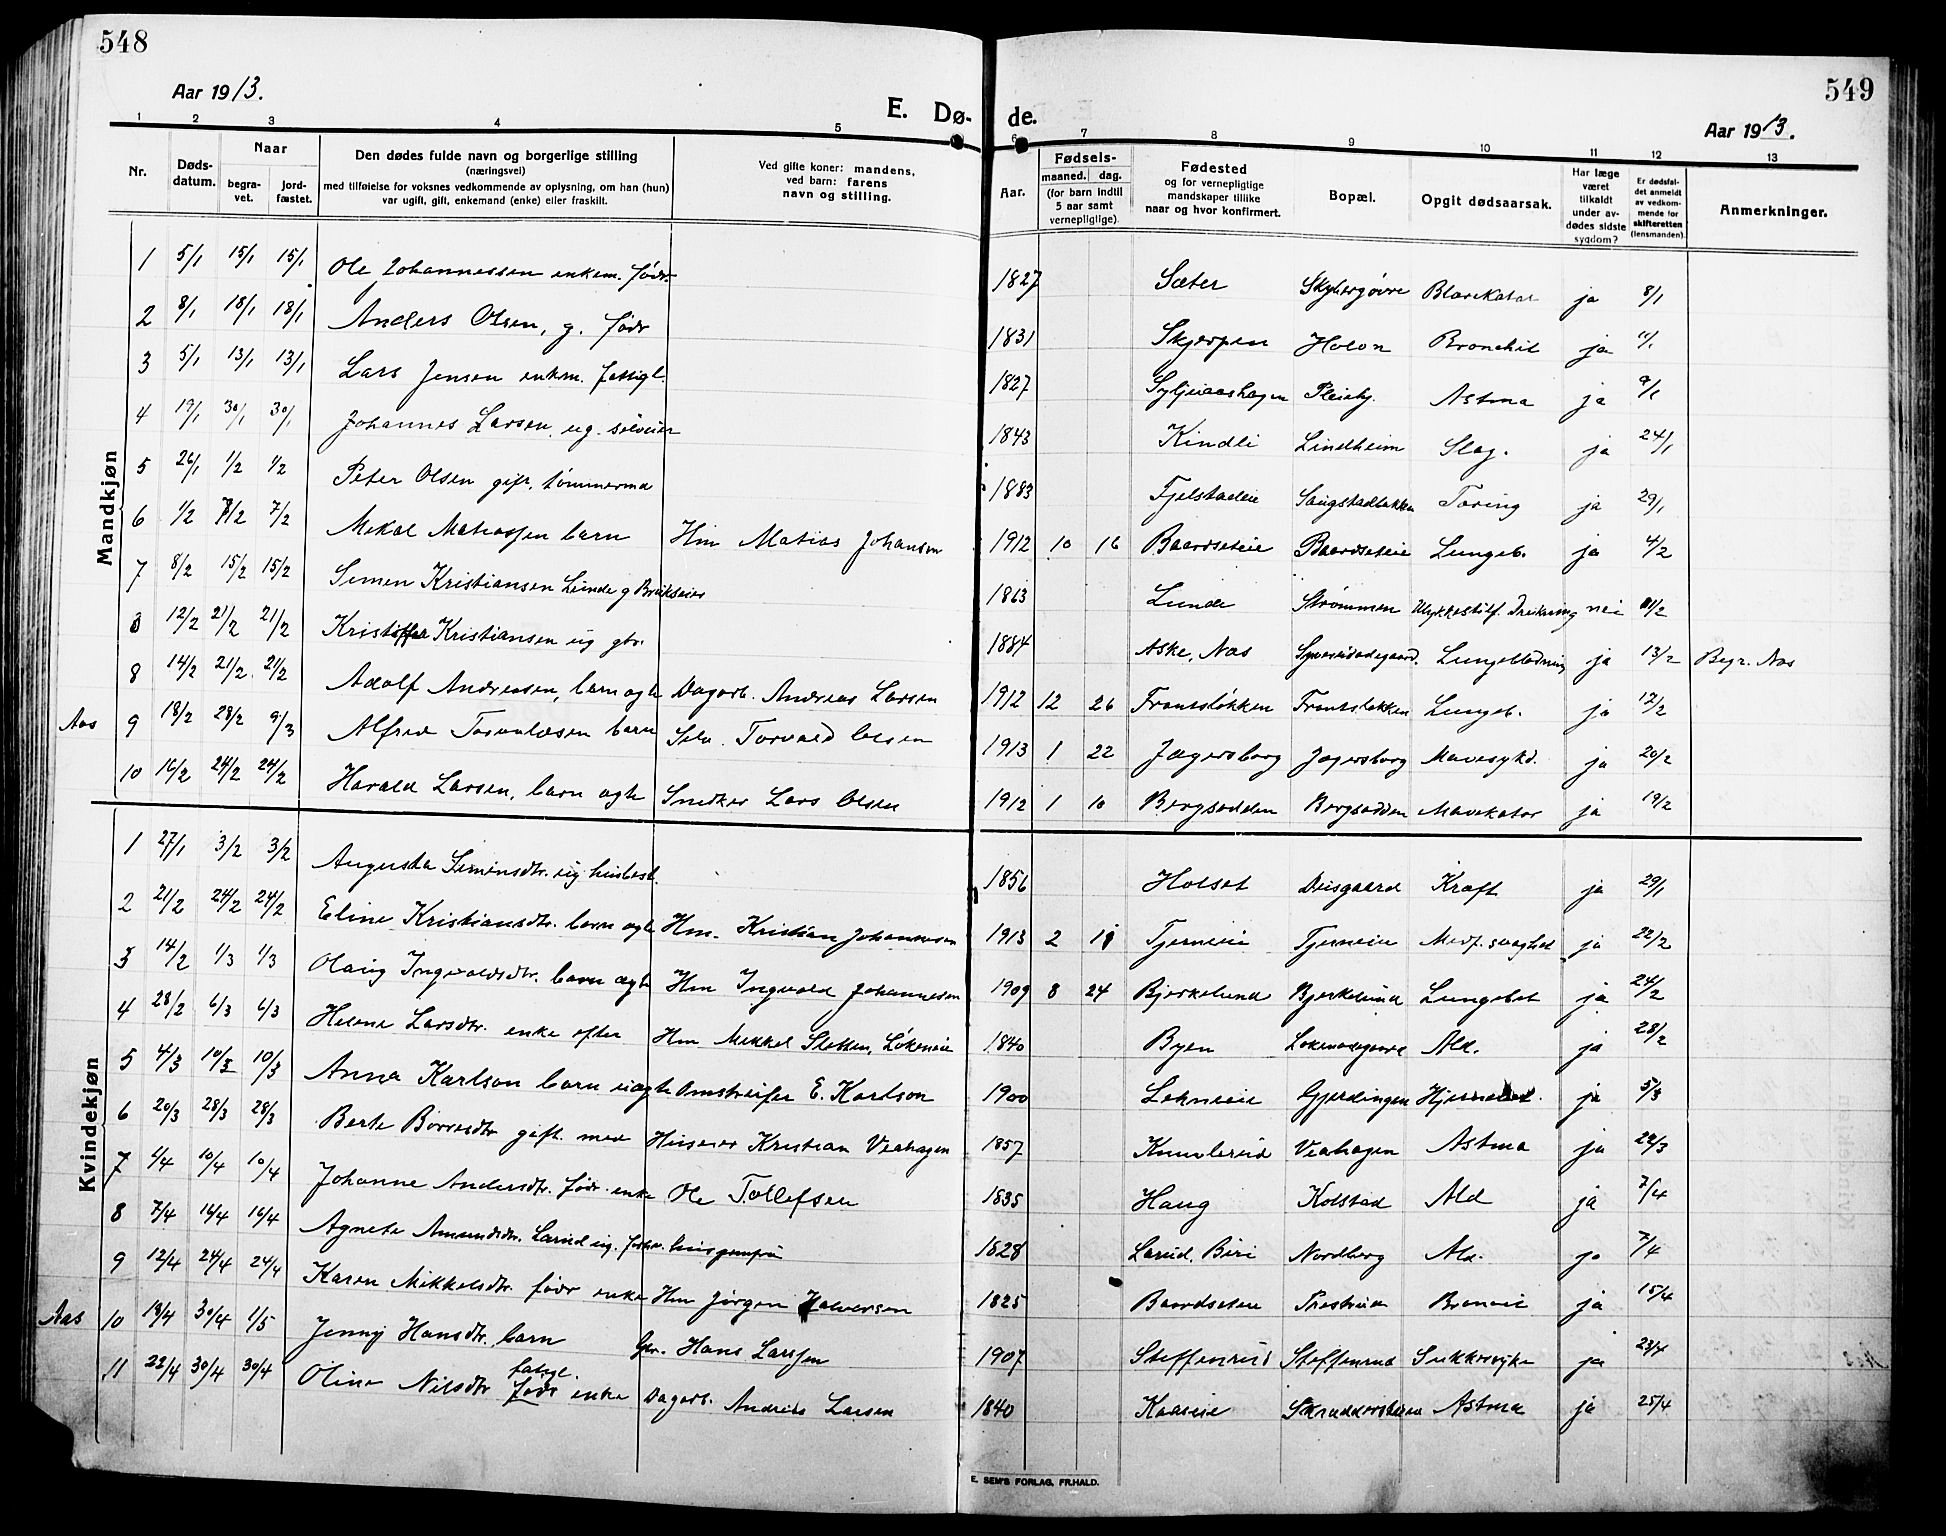 548
549
Aar 1913.
E. Dø- de.
Aar 1913.
1 2 3 4 5 6 7 8 9 10 11 12 13
Nr.
Døds-datum.
Naar
begra-vet.
jord-fæstet.
Den dødes fulde navn og borgerlige stilling
(næringsvei)
med tilføielse for voksnes vedkommende av oplysning, om han (hun)
var ugift, gift, enkemand (enke) eller fraskilt.
Ved gifte koner: mandens,
ved barn: farens
navn og stilling.
Aar.
Fødsels-
maaned. dag.
(for barn indtil
5 aar samt
vernepligtige).
Fødested
og for vernepligtige
mandskaper tillike
naar og hvor konfirmert.
Bopæl.
Opgit dødsaarsak.
Har læge
været
tilkaldt
under av-
dødes sidste
sygdom?
Er dødsfal-
det anmeldt
av vedkom-
mende for
skifteretten
(lensmanden).
Anmerkninger.
Mandkjøn
1 5/1 15/1 15/1 Ole Johannessen enkem. födr. 1827 Sæter Blærekatar ja 8/1
2 8/1 18/1 18/1 Anders Olsen, g. födr 1831 Skjerpen Holon Bronchit ja 11/1
3 5/1 13/1 13/1 Lars Jensen enkm. fattigl. 1827 Pleiehj. Astma ja 9/1
4 19/1 30/1 30/1 Johannes Larsen, ug. selveier 1843 Kindli Lindheim Slag. ja 24/1
5 26/1 1/2 1/2 Peter Olsen gift, tømmerma 1883 Fjelstadeie Saugstadløkken Tæring ja 29/1
6 1/2 7/2 7/2 Mikal Matiassen barn Hm Matias Johansen 1912 10 16 Baardseteie Baardseteie Lungeb. ja 4/2
7 8/2 15/2 15/2 Simen Kristiansen Lunde g Brukseier 1863 Lunde Strømmen Ulykkestilf. Drukning nei 11/2
8 12/2 21/2 21/2 Kristoffer Kristiansen ug gbr. 1884 Aske, Nas Lungeblødning ja 13/2 Begr. Nas
8 14/2 21/2 21/2 Adolf Andreasen, barn agte Dagarb. Andreas Larsen 1912 12 26 Frantsløkken Frantsløkken Lungeb. ja 17/2
Aas 9 18/2 28/2 9/3 Alfred Torvaldsen barn Selv. Torvald Olsen 1913 1 22 Jægersborg Jægersborg Mavesykd. ja 20/2
10 16/2 24/2 24/2 Harald Larsen, barn agte Snedker Lars Olsen 1912 1 10 Bergsodden Bergsodden Mavekatar ja 19/2
Kvindekjøn
1 27/1 3/2 3/2 Augusta Simensdtr. ug husbest. 1856 Holset Diisgaard Kræft ja 29/1
2 21/2 24/2 24/2 Eline Kristiansdtr. barn agte Hm. Kristian Johannesen 1913 2 11 Tjerneie Tjerneie Medf. svaghed ja 22/2
3 14/2 1/3 1/3 Olaug Ingvaldsdtr. barn agte Hm Ingvald Johannesen 1909 8 24 Bjerkelund Bjerkelund Lungebet ja 24/2
4 28/2 6/3 6/3 Helene Larsdtr. enke efter Hm Mikkel Sletten, Løkeneie 1840 Byen Ald. ja 28/2
5 4/3 10/3 10/3 Anna Karlson barn uagte Omstreifer E. Karlson 1900 Lokneie Gjerdingen ja 5/3
6 20/3 28/3 28/3 Berte Börresdtr gift med Huseier Kristian Veahagen 1857 Knuvlerud Veahagen Astma ja 22/3
7 4/4 10/4 10/4 Johanne Andersdtr. födr. enke Ole Tollefsen 1835 Haug Kolstad Ald ja 7/4
8 7/4 16/4 16/4 Agnete Amundsdtr. Larud ug. 1828 Larud, Biri Nordberg Ald. ja 7/4
9 12/4 24/4 24/4 Karen Mikkelsdtr. födr enke Hm Jørgen Halversen 1825 Baardseteie Prestrud ja 15/4
Aas 10 19/4 30/4 1/5 Jenny Hansdtr. barn Gbr. Hans Larssen 1907 Steffenrud Steffenrud Sukkersyke ja 23/4
11 22/4 30/4 30/4 Oline Nilsdtr fatigl. födr enke Dagarb. Andreas Larsen 1840 Kaaseie Astma ja 25/4
E. SEM'S FORLAG, FR.HALD.